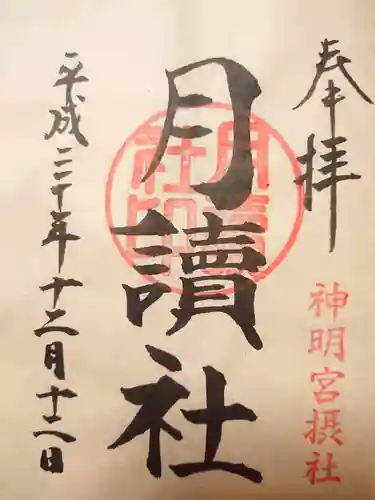 奉拝
神明宮摂社
月讀社
月讀社印
平成三十年十二月十二日